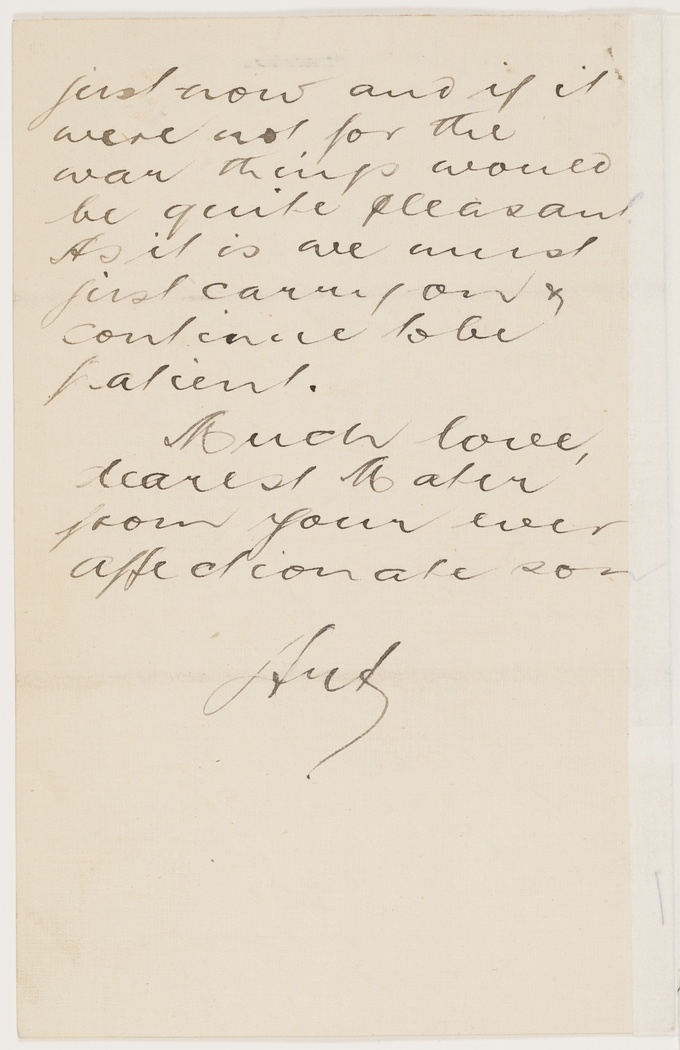 just now and if it
were not for the
war things would
be quite pleasant
As it is we must
just carry on &
continue to be
patient.
Much love,
dearest Mater
from your ever
affectionate son